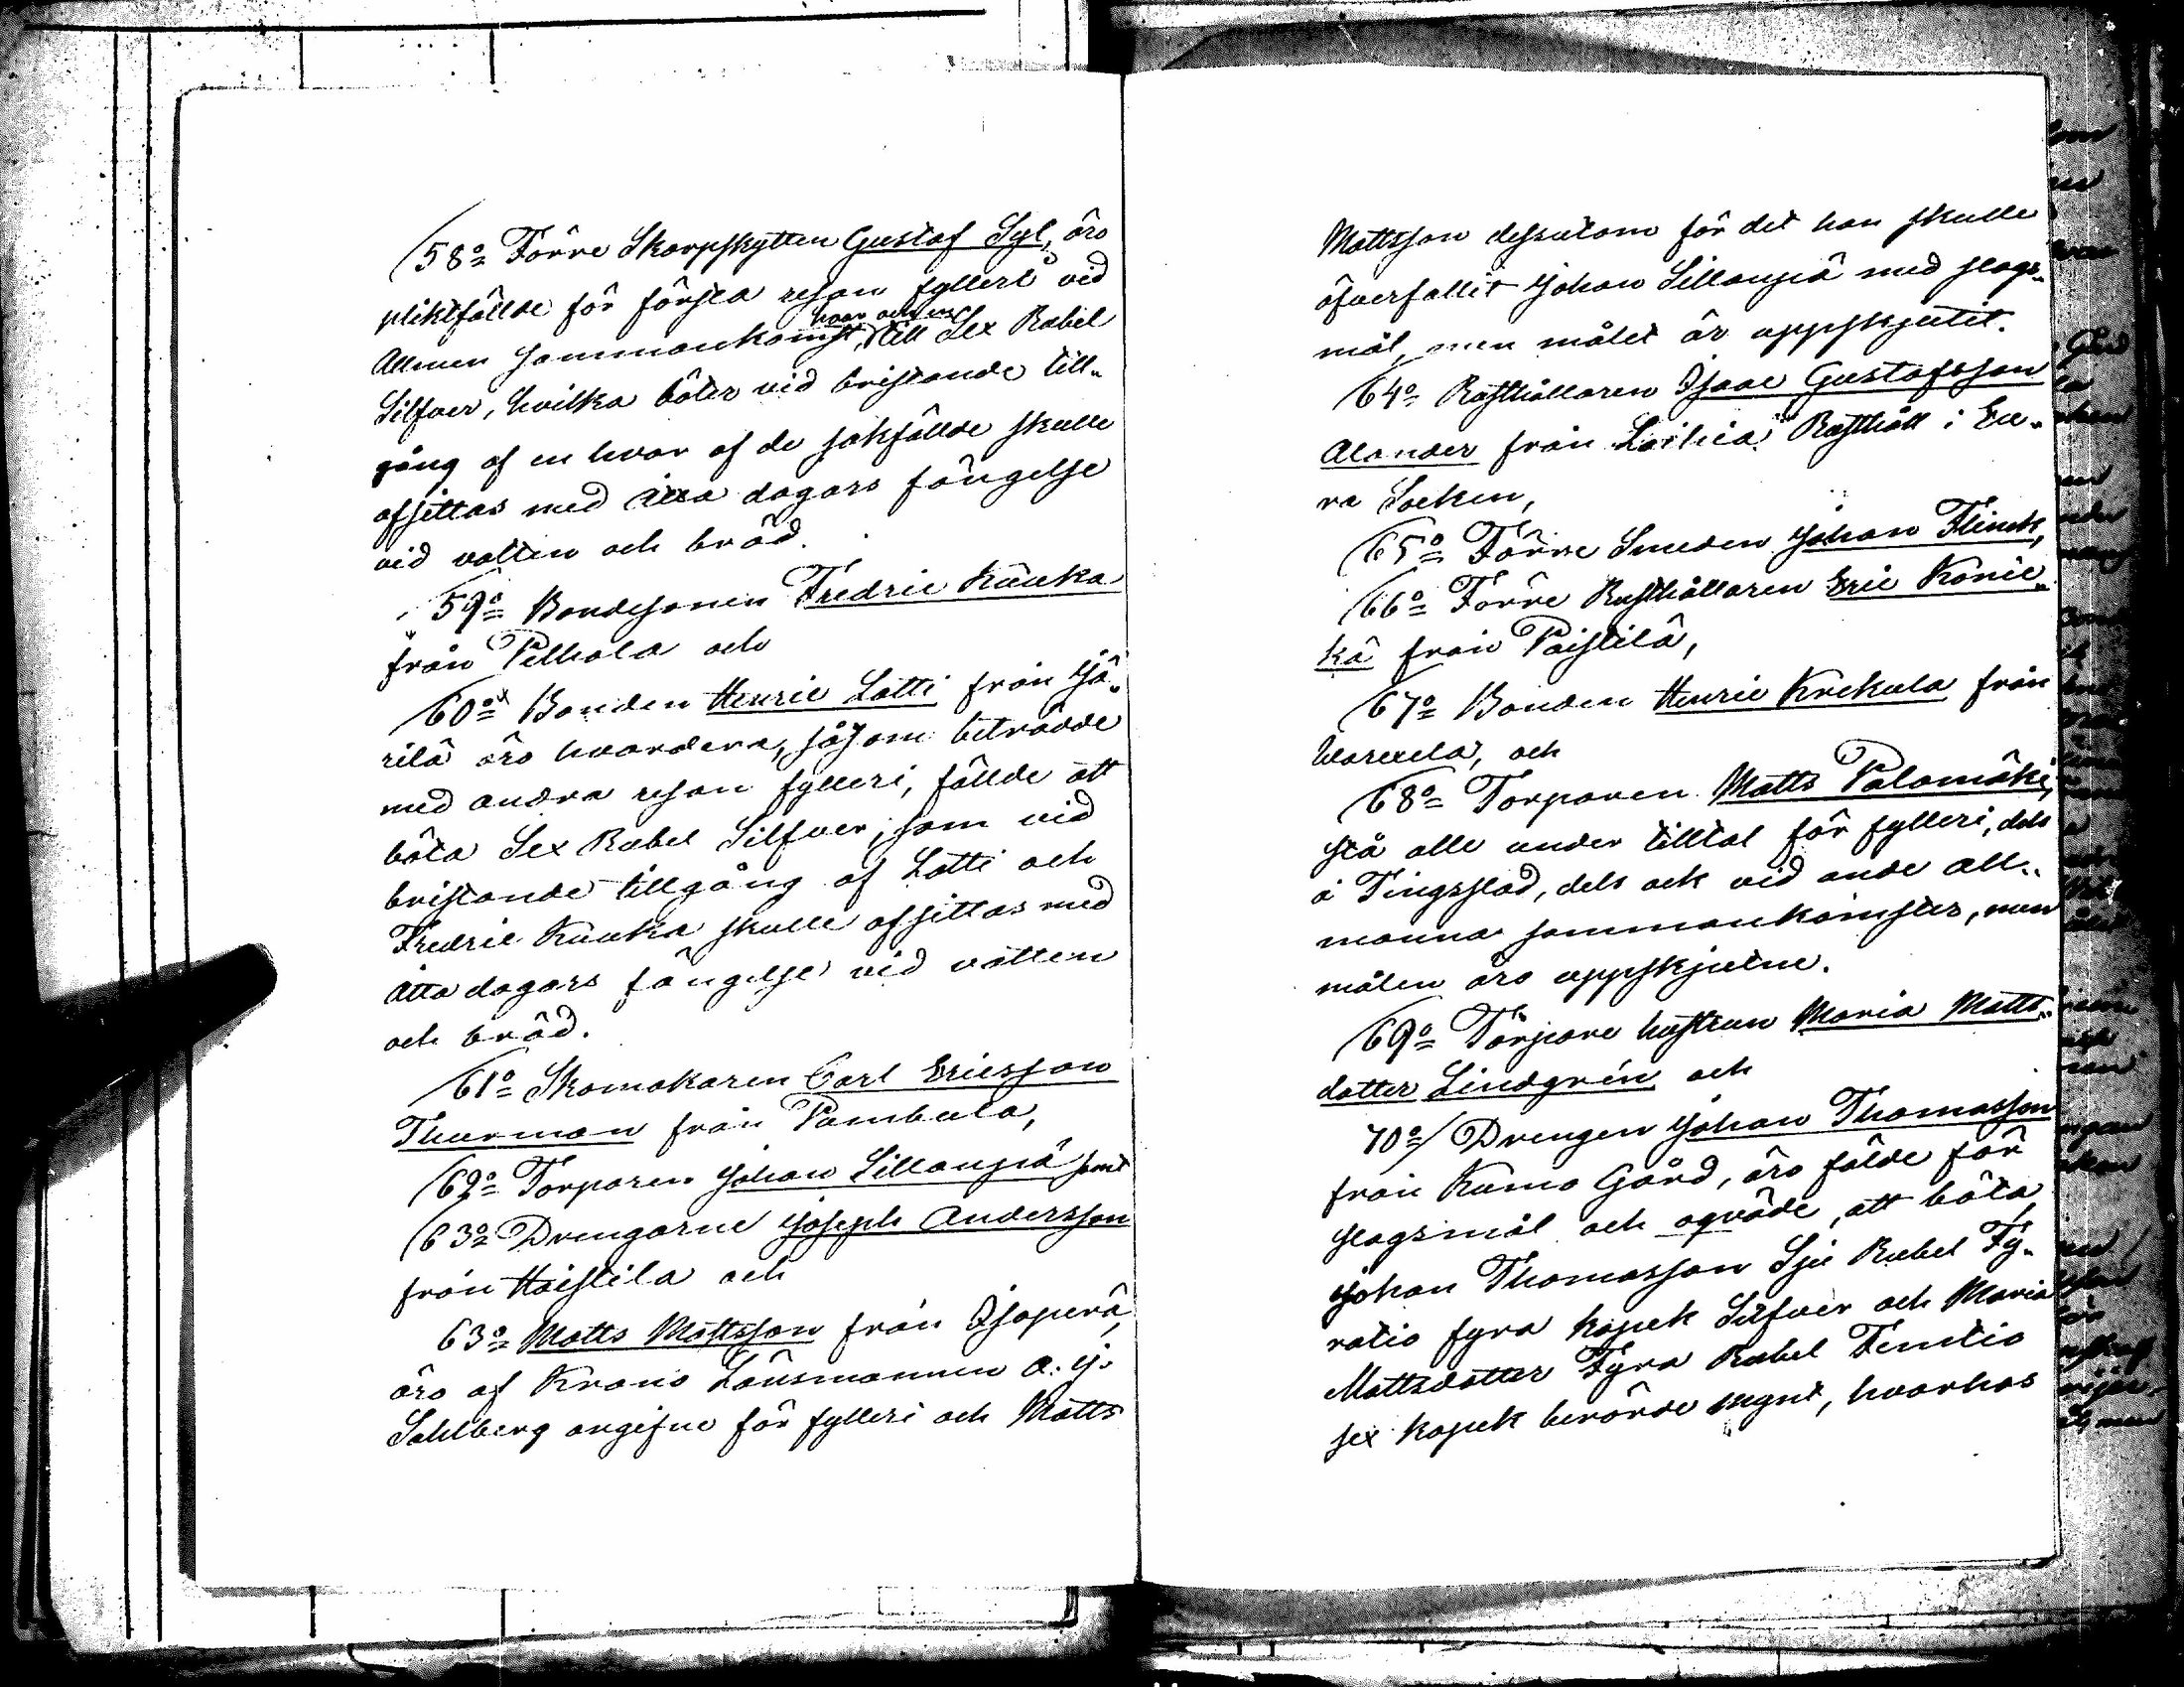 58o Förre Skarpskytten Gustaf Syl, äro
pliktfällde för första resan fylleri vid
Allmen sammankomst, hvar och en till Sex Rubel
Silfver, hvilka böter vid bristande till-
gång af en hvar af de sakfällde skulle
afsittas med åtta dagars fängelse
vid vatten och bröd.
59o Bondesonen Fredric Kauka
från Pelhola och
60o Bonden Henric Latti från Jä-
rilä äro hvardera, såsom beträdde
med andra resan fylleri, fällde att
böta Sex Rubel Silfver, som vid
bristande tillgång af Latti och
Fredric Kauka skulle afsittas med
åtta dagars fängelse vid vatten
och bröd.
61o Skomakaren Carl Ericsson
Thurman från Pambula,
62o Torparen Johan Sillanpää samt
63o Drengarne Joseph Andersson
från Haistila och
63o Matts Mattsson från Isoperä,
äro af Krono Länsmannen A. J.
Sahlberg angifne för fylleri och Matts
Mattsson dessutom för det han skulle
öfverfallit Johan Sillanpää med slags-
mål, men målet är uppskjutit.
64o Rusthållaren Isaac Gustafsson
Alander från Laihia Rusthåll i Eu-
ra Socken,
65o Förre Smeden Johan Flinck,
66o Förre Rusthållaren Eric Könic-
kä från Paistilä,
67o Bonden Henric Krekula från
och
68o Torparen Matts Palomäki,
stå alle under tilltal för fylleri, dels
å Tingsstad, dels ock vid andra all-
manna sammankomster, men
målen äro uppskjutne.
69o Torpare hustrun Maria Matts-
dotter Lindgrén och
70o/ Drengen Johan Thomasson
från Kumo Gård, äro fälde för
slagsmål och oqväde, att böta,
Johan Thomasson Sju Rubel Fy-
ratio fyra kopek Silfver och Maria
Mattsdotter Fyra Rubel Femtio
sex kopek berörde mynt, hvarhos